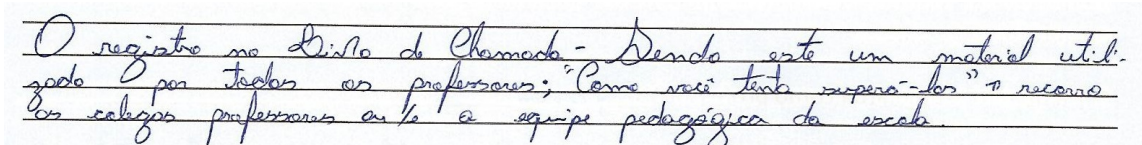 O registro no Livro de Chamada - Sendo este um material utili-
zado por todos os professores; "Como você tenta superá-los" → recorro
os colegas professores ou/e a equipe pedagógica da escola.